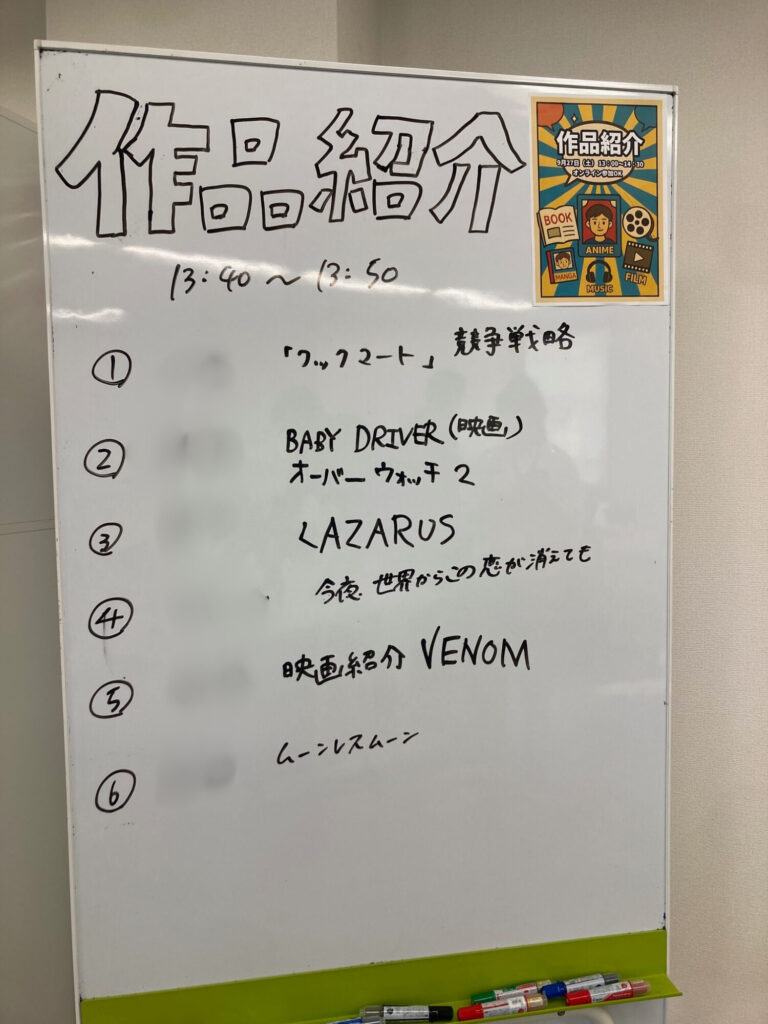 作品紹介
13:40 ~ 13:50
① 「クックマート」 競争戦略
② BABY DRIVER (映画)
オーバーウォッチ 2
③ LAZARUS
今夜、世界からこの恋が消えても
④
映画紹介 VENOM
⑤
ムーンレスムーン
⑥
作品紹介
9月27日(土) 13:00~14:30
オンライン参加OK
BOOK
ANIME
MANGA
MUSIC
FILM